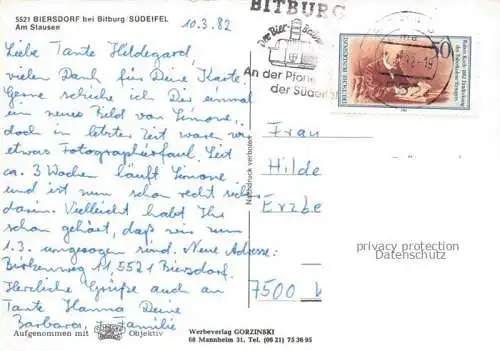 5521 BIERSDORF bei Bitburg SÜDEIFEL
Am Stausee
10.3.82
Liebe Tante Hildegard,
vielen Dank für Deine Karte
Gerne schicke ich Dir einmal
ein neues Bild von Simone,
doch in letzter Zeit waren wir
etwas Fotographierfaul. Seit
ca. 3 Wochen läuft Simone
und ist nun schon recht sicher
darin. Vielleicht habt Ihr
schon gehört, daß wir zum
1.3. umgezogen sind. Neue Adresse:
Birkenweg 11, 5521 Biersdorf.
Herzliche Grüße auch an
Tante Hanna Deine
Barbara + Familie
Aufgenommen mit Objektiv
Werbeverlag GORZINSKI
68 Mannheim 31, Tel. (06 21) 75 36 95
Nachdruck verboten
BITBURG
An der Pforte
der Südeifel
DEUTSCHE BUNDESPOST
50
Robert Koch · 1882 Entdeckung
des Tuberkulose-Erregers
Frau
Hilde
Erzbe
7500
privacy protection
Datenschutz